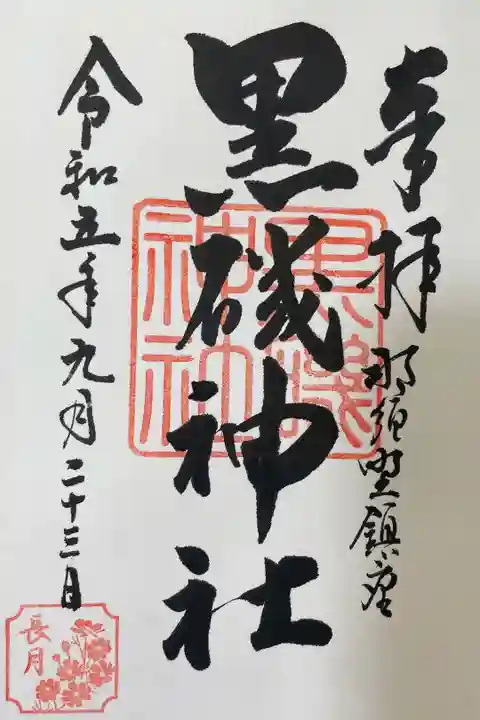 奉拝
那須野鎮座
黒磯神社
黒磯
神社
令和五年九月二十三日
長月